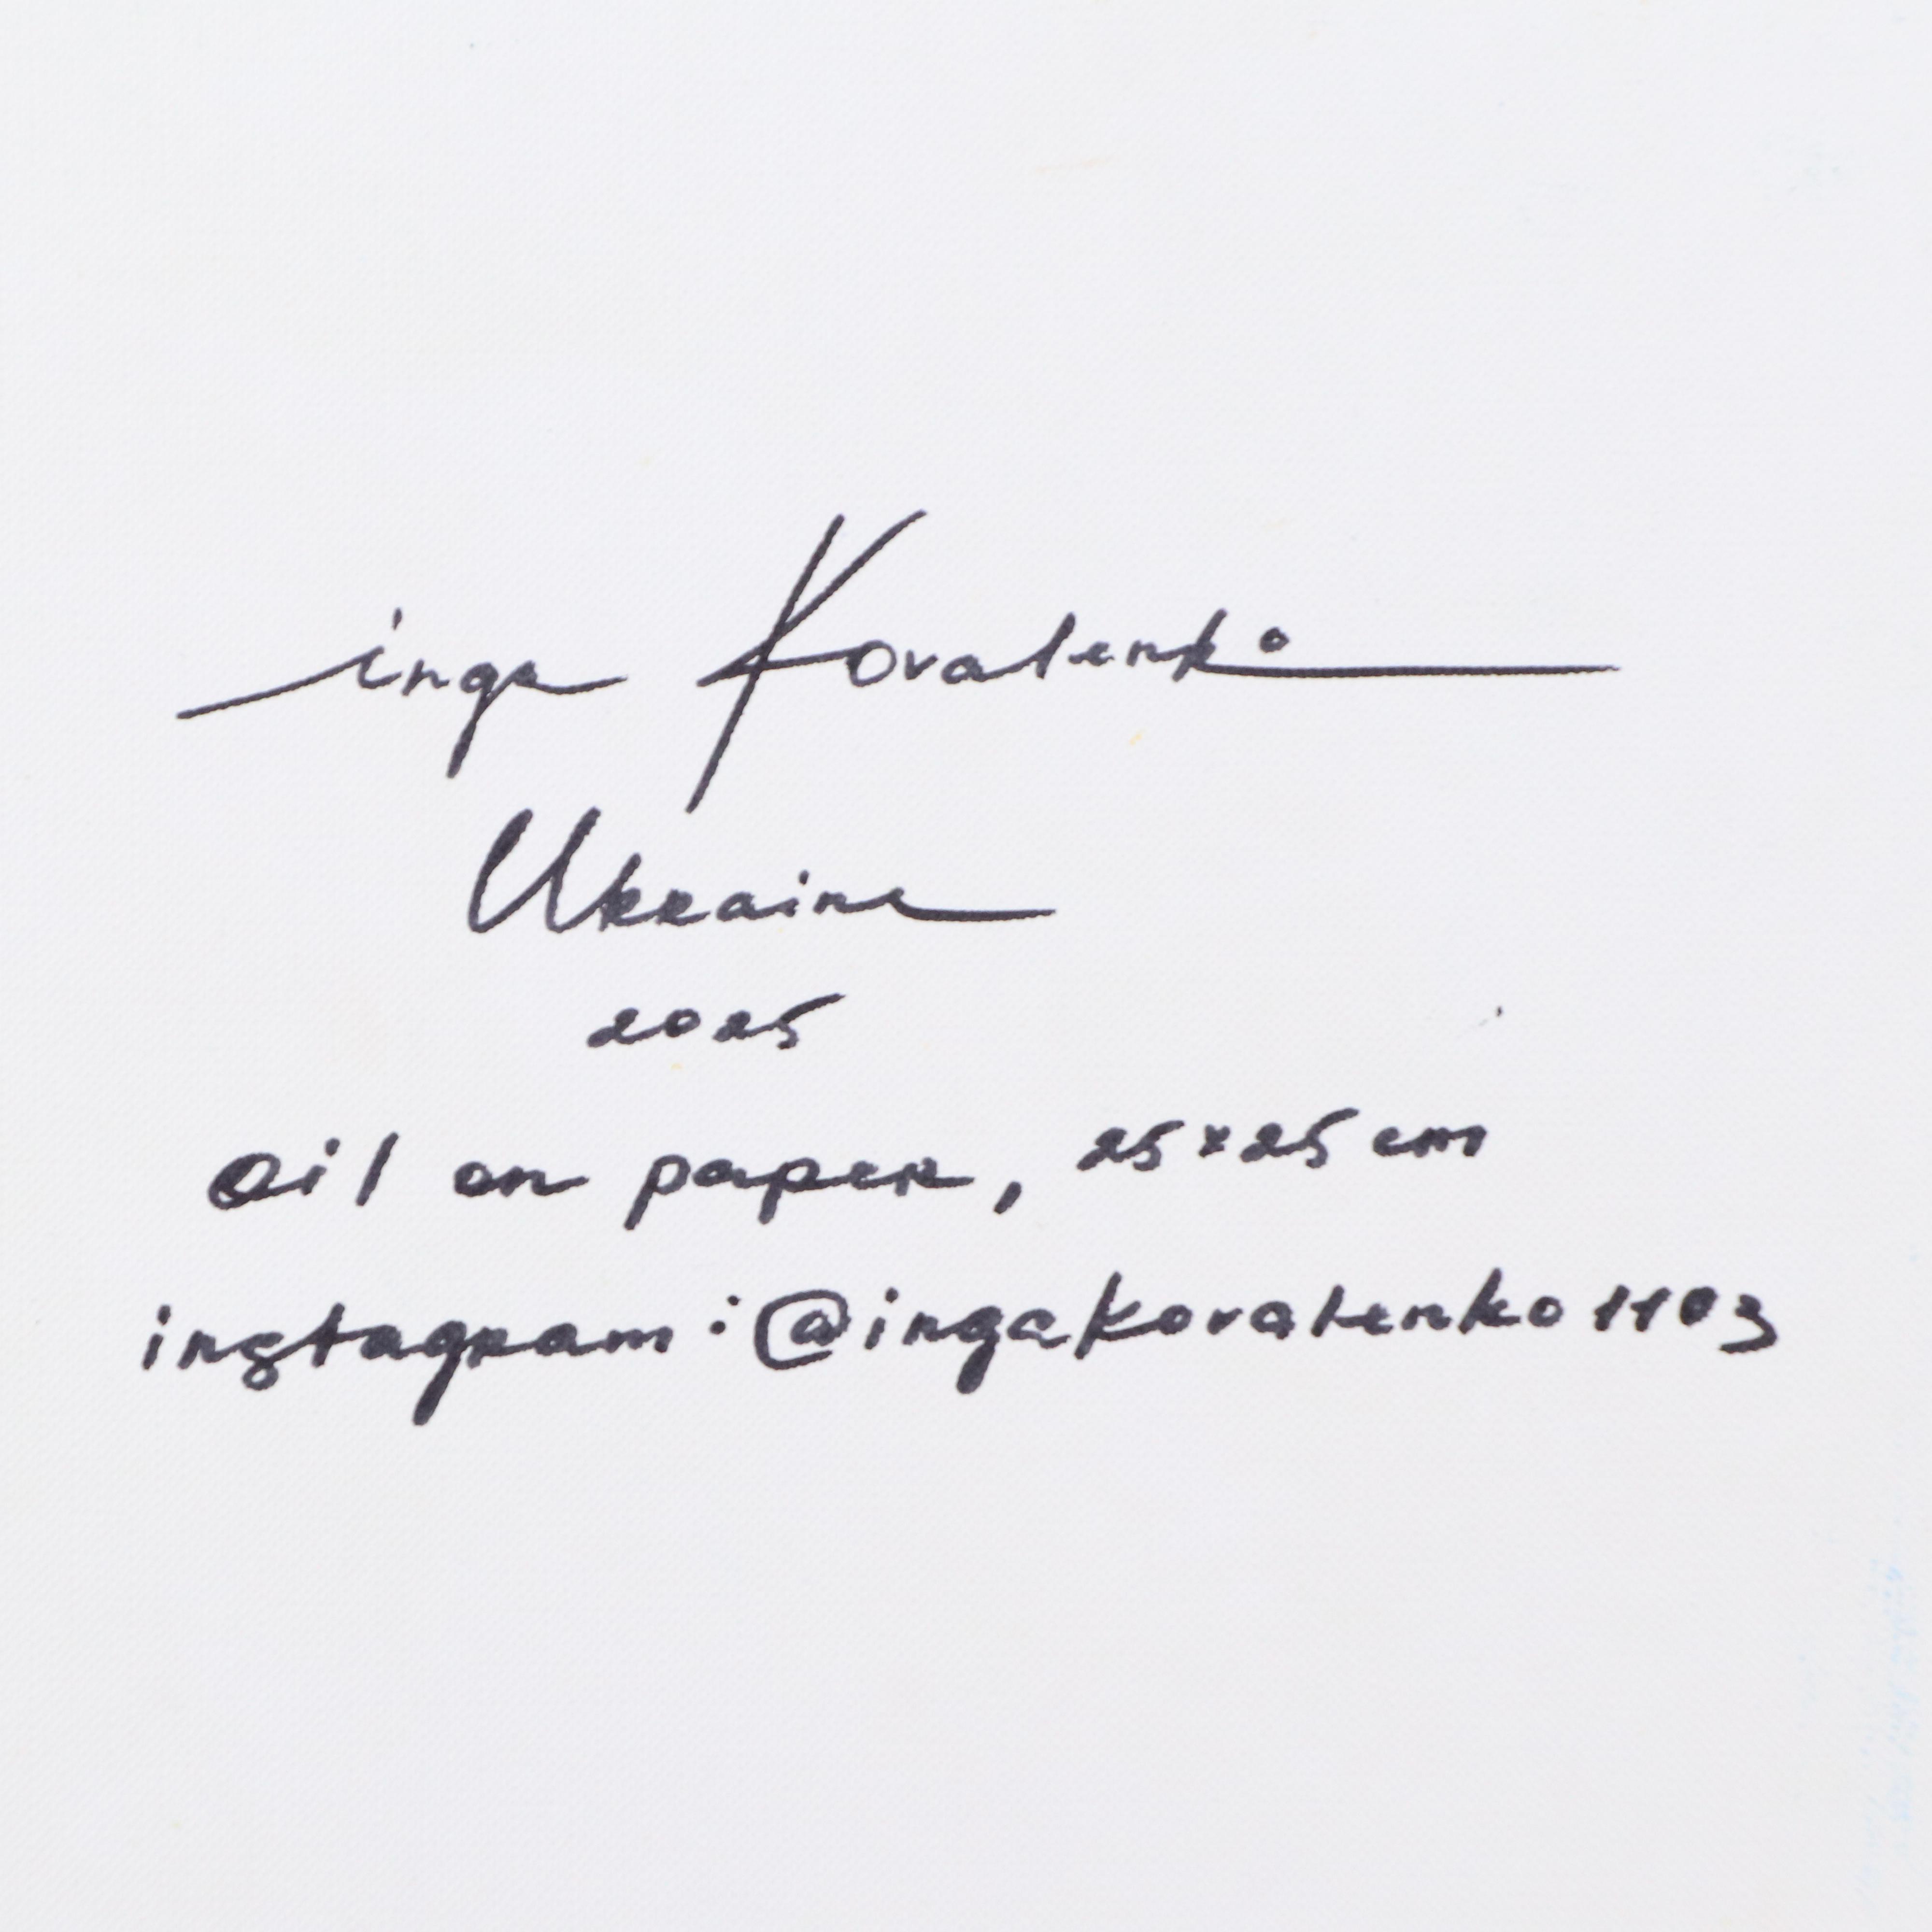 inga Kovalenko
Ukraine
2025
oil on paper, 25x25 cm
instagram: @ingakovalenko1103